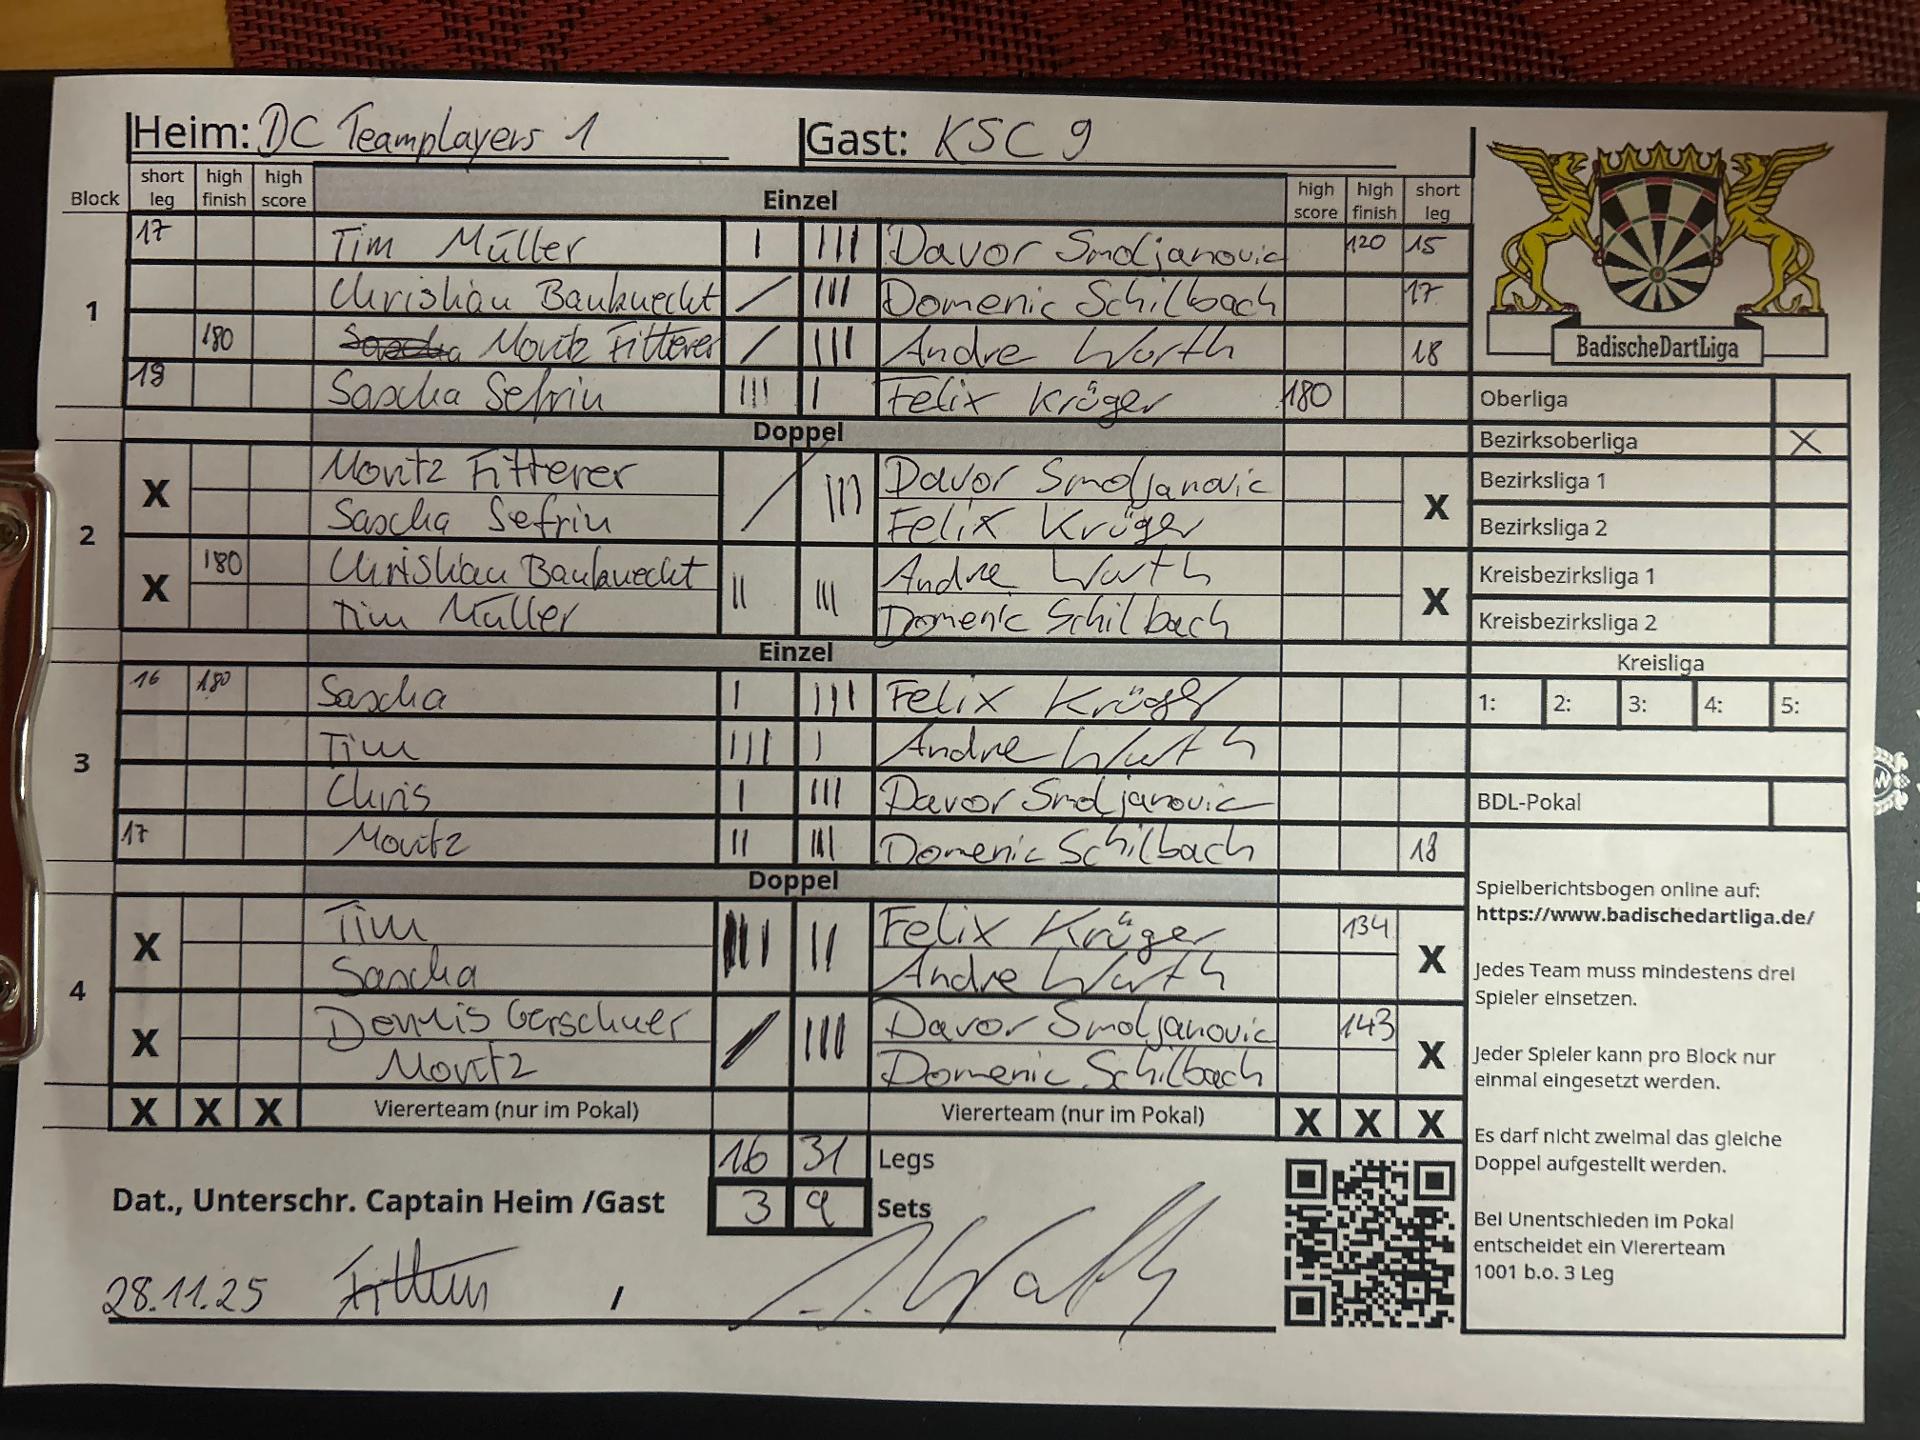 Heim: DC Teamplayers 1 Gast: KSC 9
Block short leg high finish high score Einzel high score high finish short leg
1
17 Tim Müller I III Davor Smoljanovic 120 15
Christian Bauknecht / III Domenic Schilbach 17
180 Moritz Fitterer / III Andre Wurth 18
18 Sascha Sefrin III I Felix Krüger 180
Doppel
2
X Moritz Fitterer / III Davor Smoljanovic X
Sascha Sefrin Felix Krüger
X 180 Christian Bauknecht II III Andre Wurth X
Tim Müller Domenic Schilbach
Einzel
3
16 180 Sascha I III Felix Krüger
Tim III I Andre Wurth
Chris I III Davor Smoljanovic
17 Moritz II III Domenic Schilbach 18
Doppel
4
X Tim III II Felix Krüger 134 X
Sascha Andre Wurth
X Dennis Gerschner / III Davor Smoljanovic 143 X
Moritz Domenic Schilbach
X X X Viererteam (nur im Pokal) Viererteam (nur im Pokal) X X X
16 31 Legs
Dat., Unterschr. Captain Heim /Gast 3 9 Sets
28.11.25 Fitterer /
BadischeDartLiga
Oberliga
Bezirksoberliga X
Bezirksliga 1
Bezirksliga 2
Kreisbezirksliga 1
Kreisbezirksliga 2
Kreisliga
1: 2: 3: 4: 5:
BDL-Pokal
Spielberichtsbogen online auf:
https://www.badischedartliga.de/
Jedes Team muss mindestens drei
Spieler einsetzen.
Jeder Spieler kann pro Block nur
einmal eingesetzt werden.
Es darf nicht zweimal das gleiche
Doppel aufgestellt werden.
Bei Unentschieden im Pokal
entscheidet ein Viererteam
1001 b.o. 3 Leg